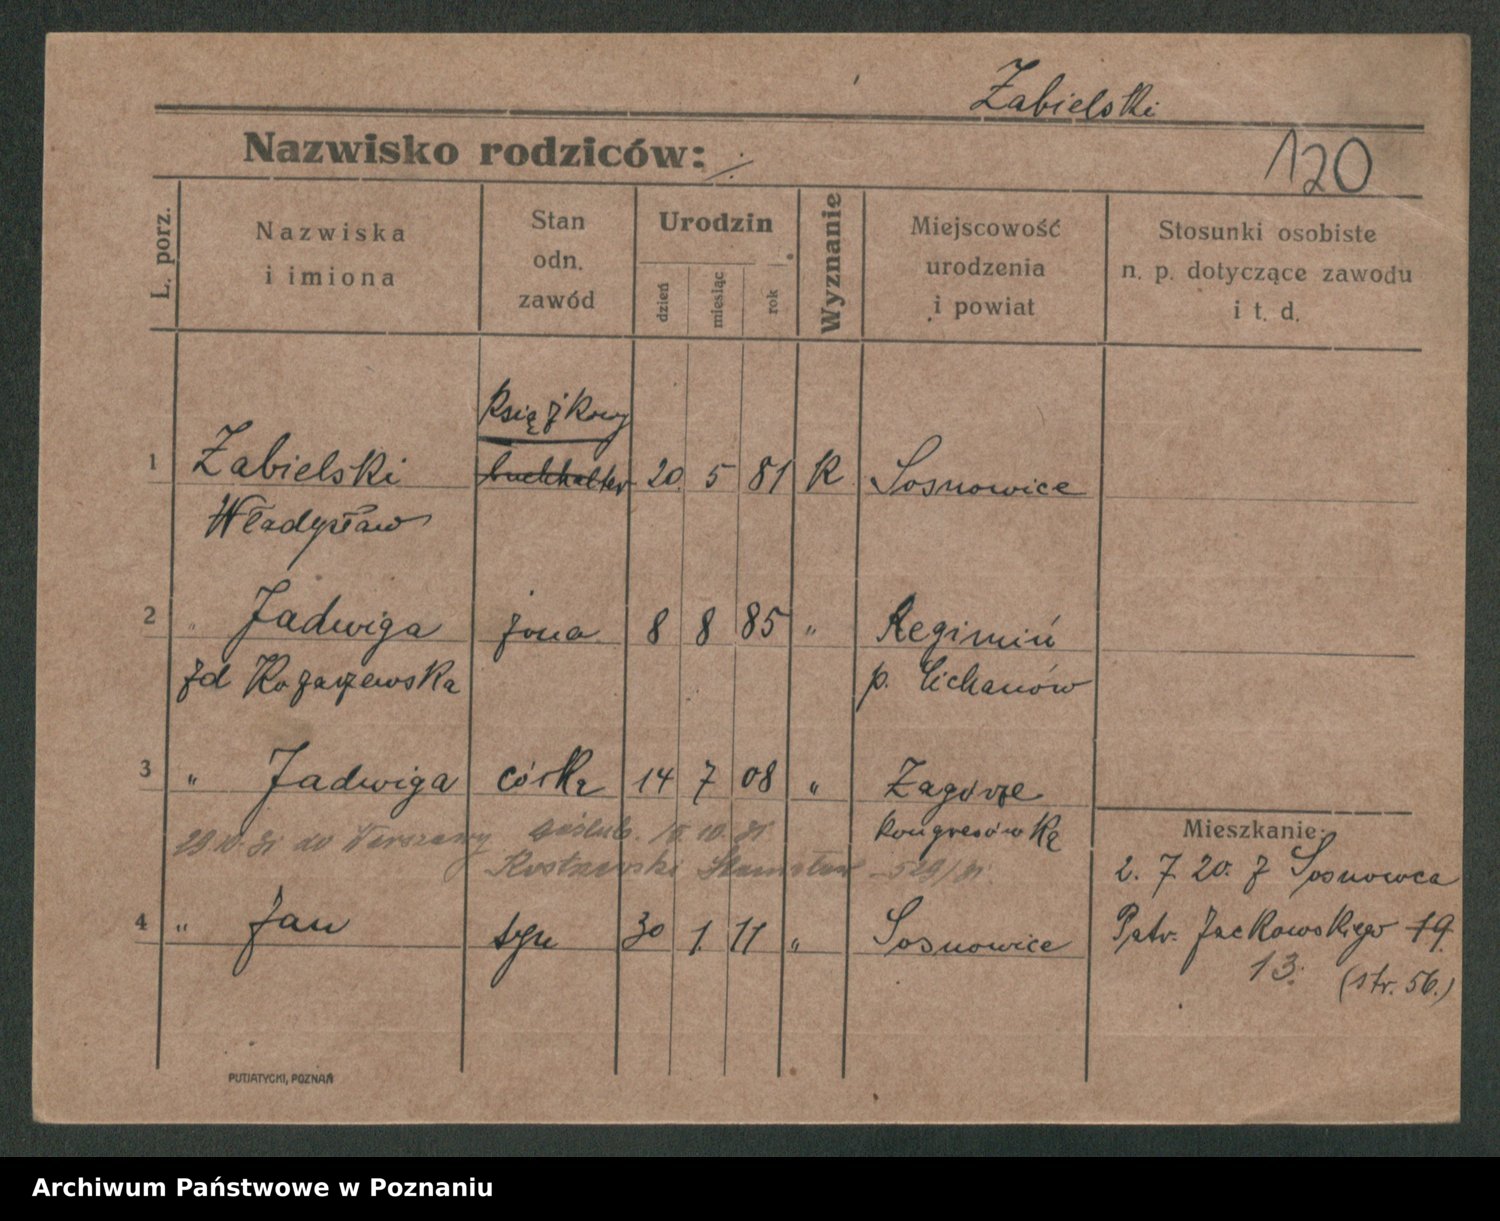 Żabielski
Nazwisko rodziców:
120
L. porz.
Nazwiska
i imiona
Stan
odn.
zawód
Urodzin
dzień
miesiąc
rok
Wyznanie
Miejscowość
urodzenia
i powiat
Stosunki osobiste
n. p. dotyczące zawodu
i t. d.
książkowy
1 Żabielski buchhalter 20. 5 81 k Sosnowice
Władysław
2 " Jadwiga żona 8 8 85 " Regimin
żd p. Cichanów
3 " Jadwiga córka 14 7 08 " Zagórze
kongresówka
29.10.31 do Warszawy 10. 31
Stanisław 529/31
4 " Jan syn 30 1. 11 " Sosnowice
Mieszkanie:
2. 7. 20. z Sosnowca
Patr. Jackowskiego 19.
13. (str. 56.)
PUTIATYCKI, POZNAŃ
Archiwum Państwowe w Poznaniu